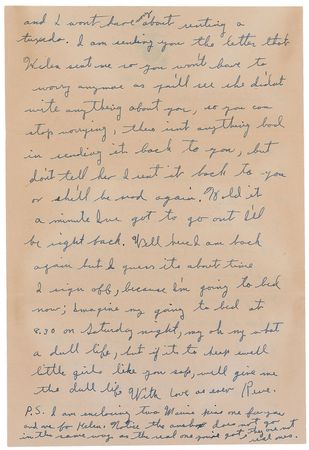 and I wont have or about renting a
tuxedo. I am sending you the letter that
Helen sent me so you won't have to
worry anymore as you'll see she did'nt
write anything about you, so you can
stop worrying, theres isnt anything bad
in sending it back to you, but
dont tell her I sent it back to you
or she'll be mad again. Hold it
a minute Ive got to go out I'll
be right back. Well here I am back
again but I guess its about time
I sign off, because Im going to bed
now; imagine my going to bed at
8.30 on Saturday night, my oh my what
a dull life, but if its to keep well
little girls like you safe, well give me
the dull life With Love as ever Rene.
P.S. I am enclosing two Marine pins one for you
and one for Helen. Notice the anchor does not go
in the same way as the real one you've got, they are not
real ones.